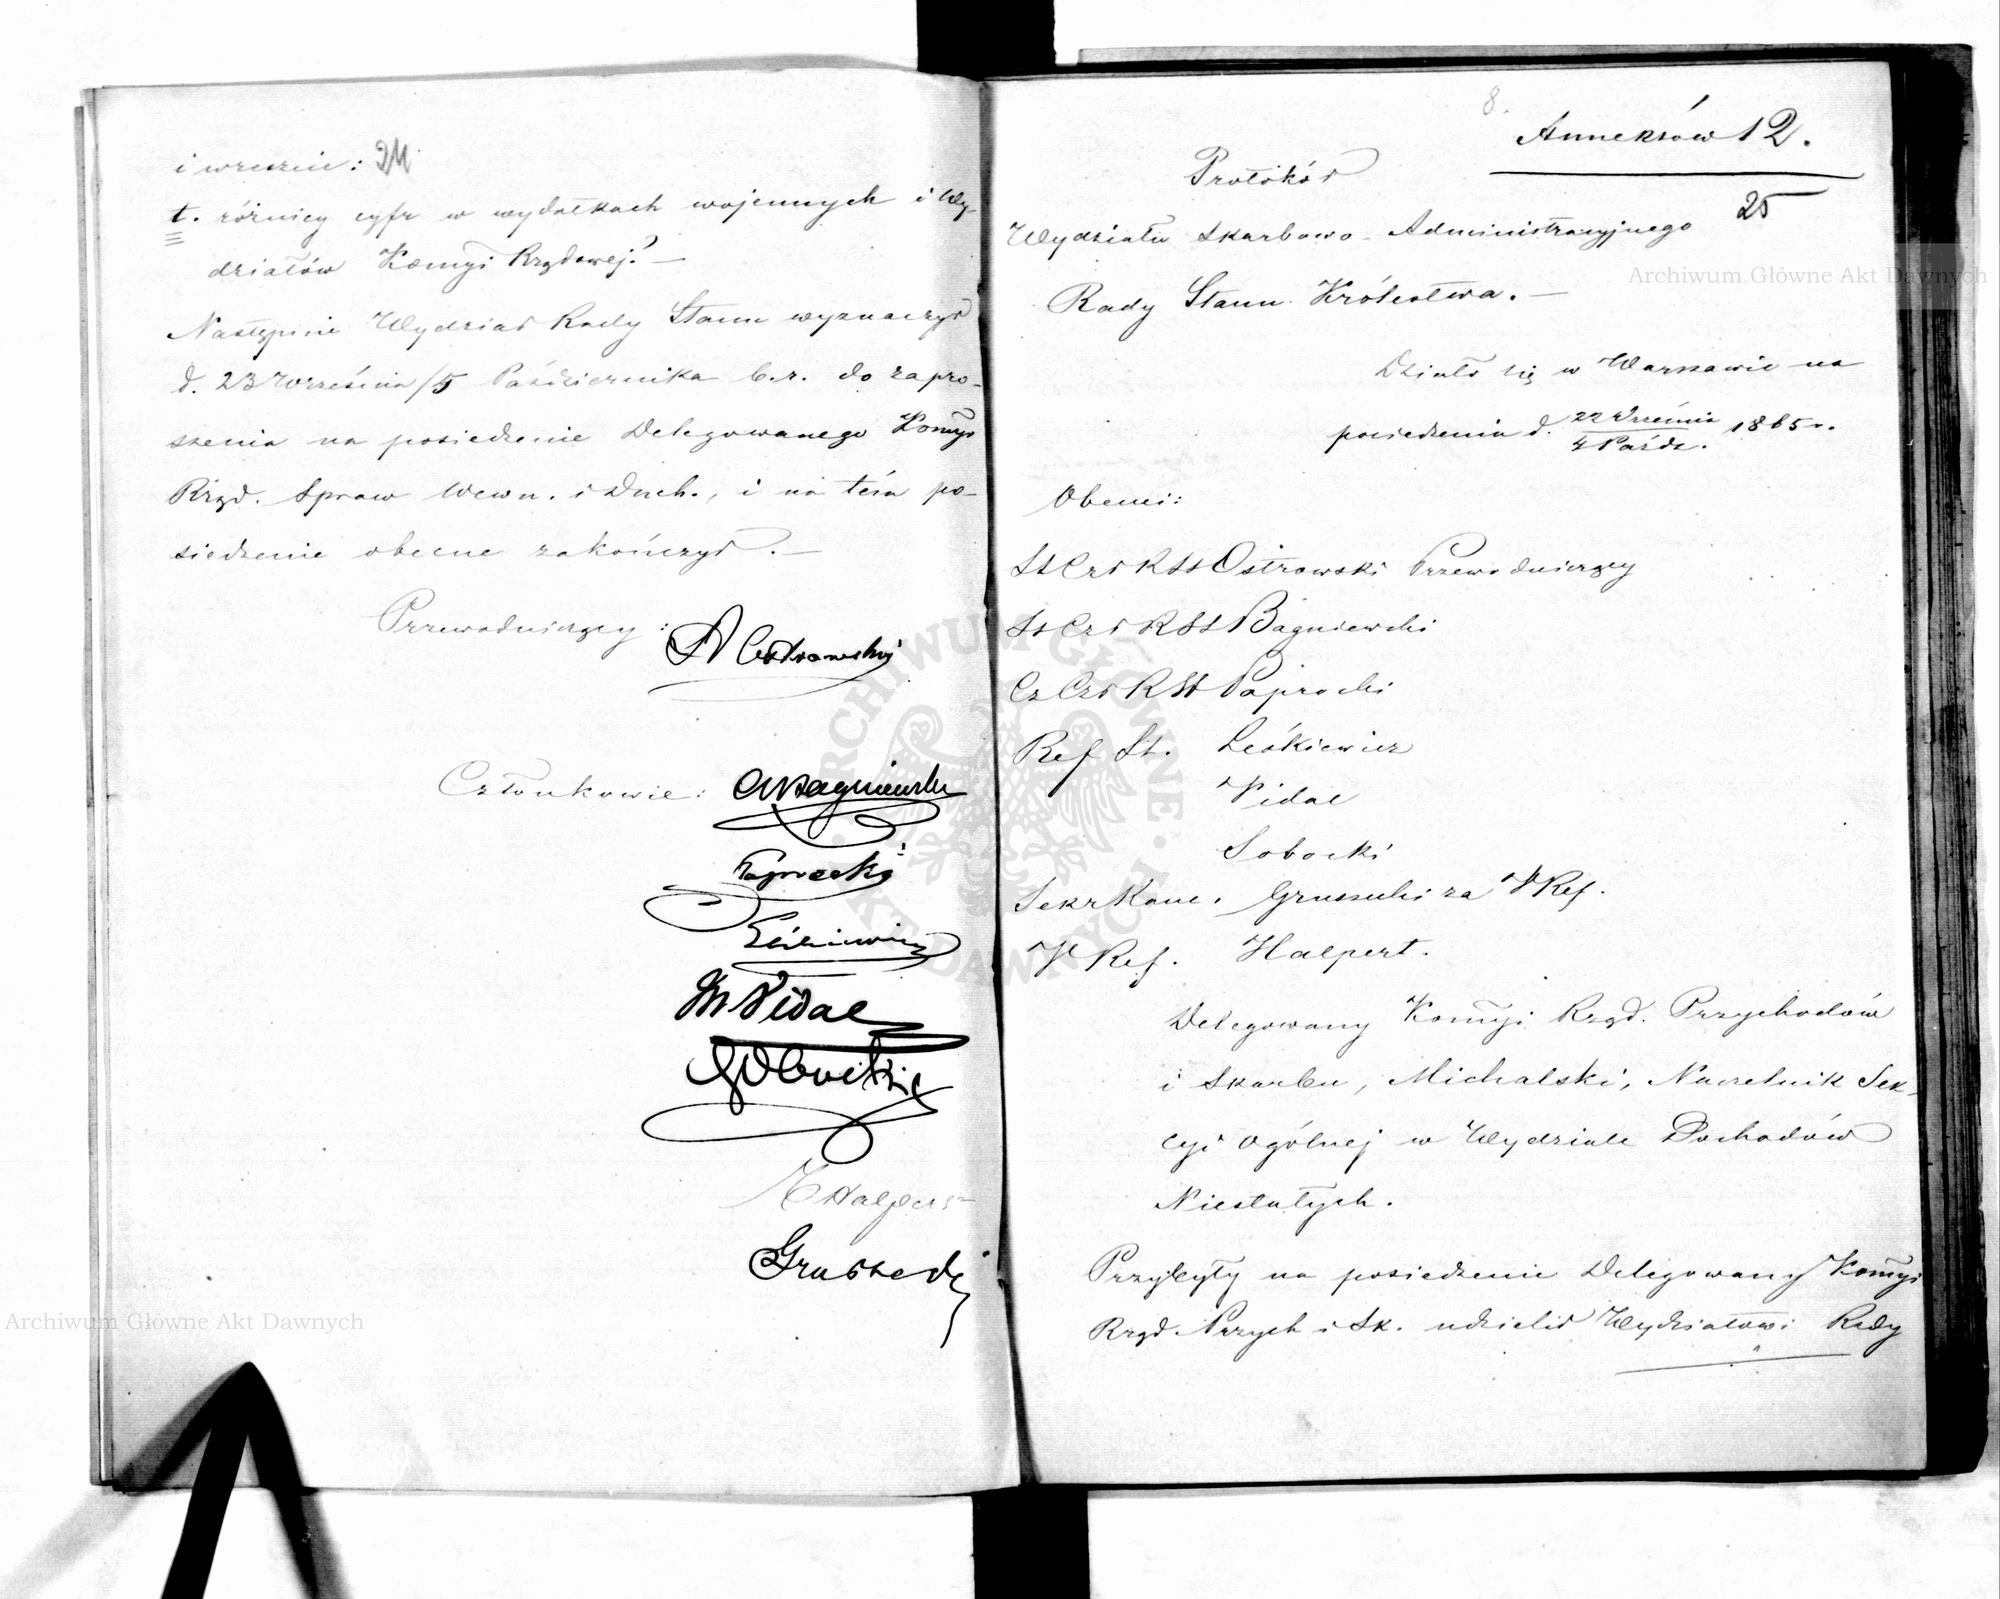 i wreszcie: 24
t. różnicy cyfr w wydatkach wojennych i Wy-
działów Komyi Rządowej? —
Następnie Wydział Rady Stanu wyznaczył
d. 23 Września/5 Października b.r. do zapro-
szenia na posiedzenie Delegowanego Komyi
Rząd. Spraw Wewn. i Duch., i na tém po-
siedzenie obecne zakończył. —
Przewodniczący: A Ostrowski
Członkowie: Bagniewski
Paprocki
Leśkiewicz
Vidal
Sobocki
Halpert
Gruszecki
8.
Anneksów 12.
25
Protokół
Wydziału Skarbowo-Administracyjnego
Rady Stanu Królestwa. —
Działo się w Warszawie na
posiedzeniu d. 22 Września/4 Paźdz. 1865 r.
Obecni:
St Czł R St Ostrowski Przewodniczący
St Czł R St Bagniewski
Cz Czł R St Paprocki
Ref St. Leśkiewicz
Vidal
Sobocki
Sekr Kanc. Gruszecki za V Ref.
V Ref. Halpert.
Delegowany Komyi Rząd. Przychodów
i Skarbu, Michalski, Naczelnik Sek-
cyi Ogólnej w Wydziale Dochodów
Niestałych.
Przybyły na posiedzenie Delegowany Komyi
Rząd. Przych i Sk. udzielił Wydziałowi Rady
Archiwum Główne Akt Dawnych
Archiwum Główne Akt Dawnych
ARCHIWUM GŁÓWNE AKT DAWNYCH